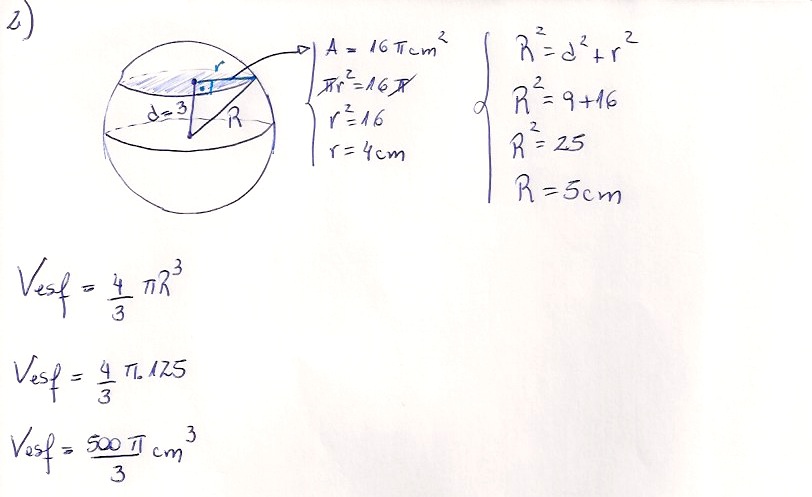 2)
r
d=3
R
A = 16πcm²
πr²=16π
r²=16
r=4cm
R²=d²+r²
R²=9+16
R²=25
R=5cm
Vesf = 4/3 πR³
Vesf = 4/3 π.125
Vesf = 500π/3 cm³